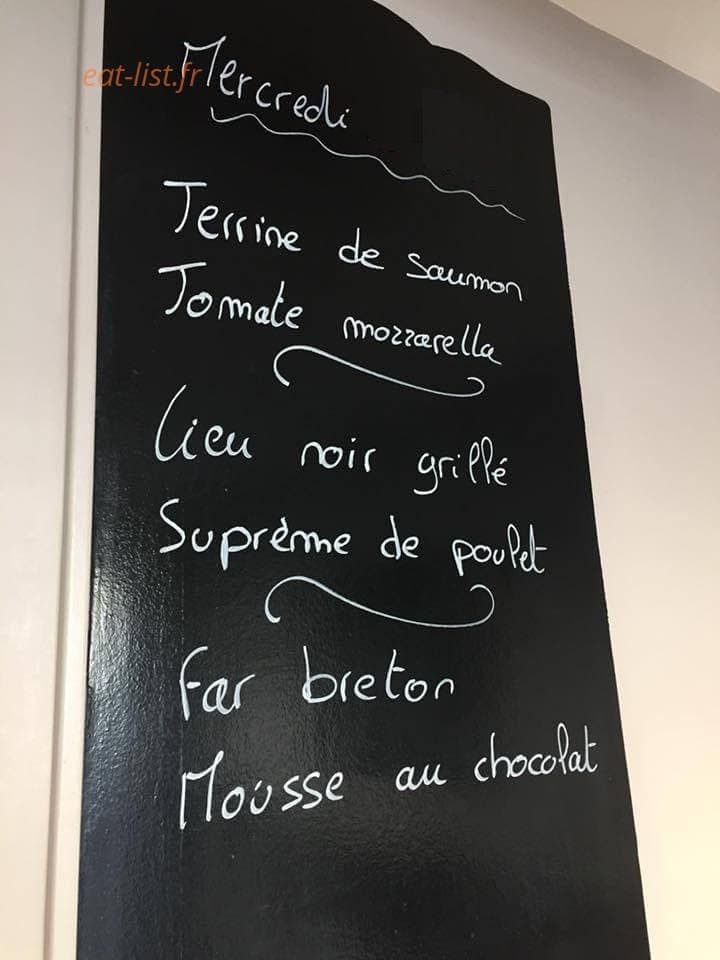 eat-list.fr
Mercredi
Terrine de saumon
Tomate mozzarella
Lieu noir grillé
Suprème de poulet
Far breton
Mousse au chocolat